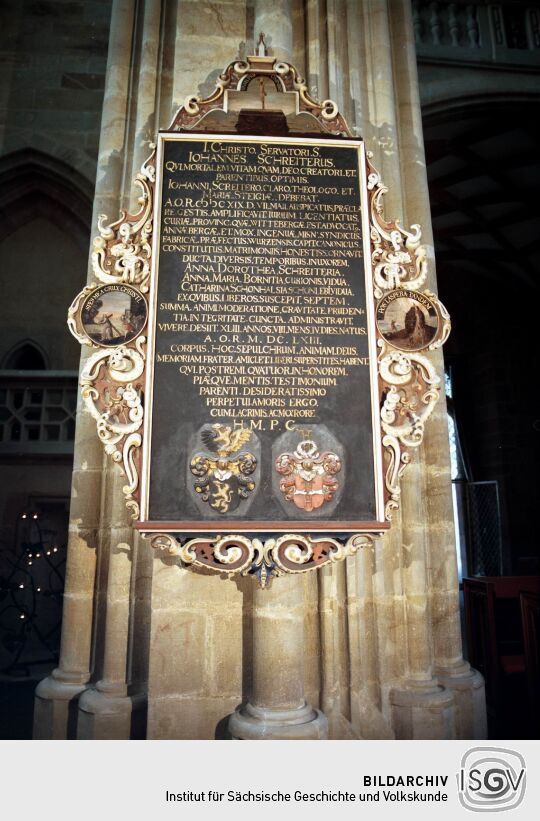 I. CHRISTO. SERVATORI. S.
IOHANNES SCHREITERUS.
QVI. MORTALEM. VITAM. QVAM. DEO. CREATORI. ET.
PARENTIBUS. OPTIMIS.
IOHANNI. SCREITERO. CLARO. THEOLOGO. ET.
MARIÆ. STEIGIÆ. DEBEBAT.
RE. GESTIS. AMPLIFICAVIT. IURIUM. LICENTIATUS.
CURIÆ. PROVINC. QVÆ. WITTEBERGÆ. EST. ADVOCAT,
ANNÆBERGÆ. ET. MOX. INGENUÆ. MISN. SYNDICUS.
FABRICÆ. PRÆFECTUS. WURZENSIS. CAPIT. CANONICUS.
CONSTITUTUS. MATRIMONIIS. HONESTISS. ORNAVIT
DUCTA. DIVERSIS. TEMPORIBUS. IN. UXOREM.
ANNA. DOROTHEA. SCHREITERIA.
ANNA. MARIA. BORNITIA. CURIONIS. VIDUA.
CATHARINA
EX. QVIBUS. LIBEROS. SUSCEPIT. SEPTEM.
SUMMA. ANIMI. MODERATIONE. GRAVITATE. PRUDEN-
TIA. INTEGRITATE. CUNCTA. ADMINISTRAVIT.
VIVERE. DESIIT. XLIII. ANNOS. VII. MENS. IV. DIES. NATUS.
A. O. R. M. DC. LXIII.
CORPUS. HOC. SEPULCHRUM. ANIMAM. DEUS.
MEMORIAM. FRATER. AMICI. ET. LIBERI. SUPERSTITES. HABENT.
QVI. POSTREMI. QVATUOR. IN. HONOREM.
PIÆQVE. MENTIS. TESTIMONIUM.
PARENTI. DESIDERATISSIMO
PERPETUI. AMORIS. ERGO.
CUM. LACRIMIS. AC. MOERORE
H. M. P. C.
BILDARCHIV
Institut für Sächsische Geschichte und Volkskunde
ISGV